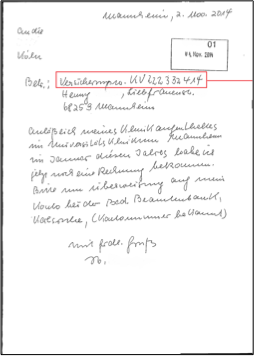 Mannheim, 2. Nov. 2014
An die
Köln
01
Betr.: Versicherungsnr. KV222333414
Henny , Liebfrauenstr.
68259 Mannheim
Anläßlich meines Klinikaufenthaltes
im Universitätsklinikum Mannheim
im Januar diesen Jahres habe ich
jetzt noch eine Rechnung bekommen.
Bitte um Überweisung auf mein
Konto bei der Bad. Beamtenbank,
Karlsruhe, (Kontonummer bekannt)
mit frdl. Gruß